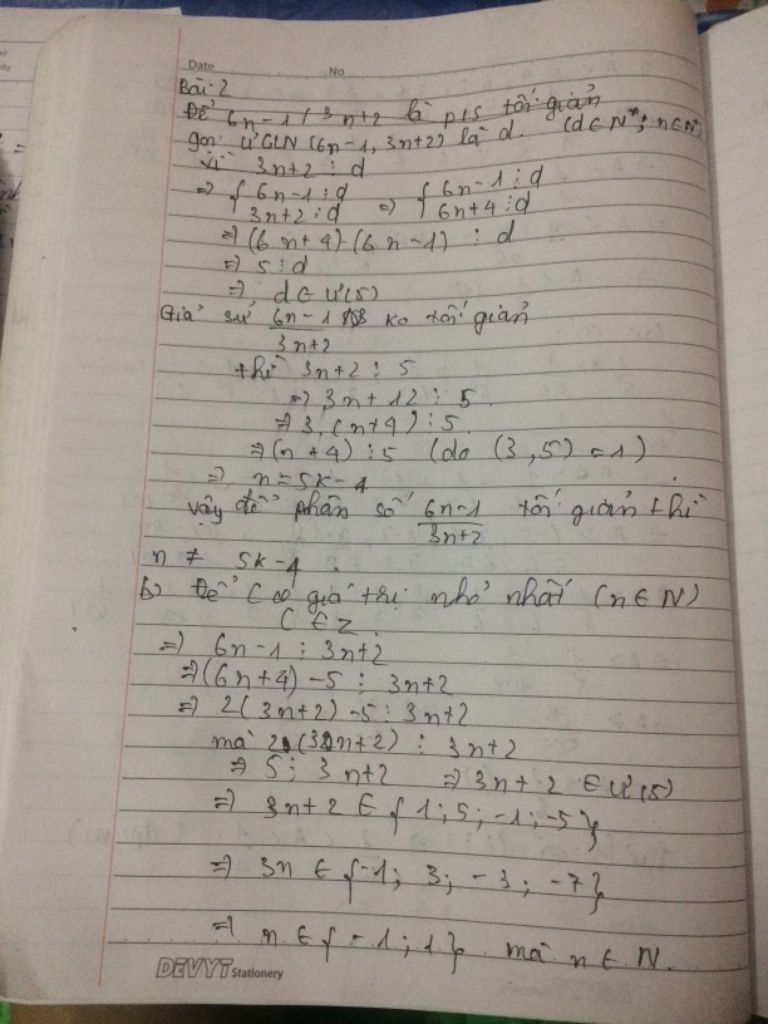 Date No
Bài 2
Để 6n-1/3n+2 là p/s tối giản
gọi ƯCLN (6n-1, 3n+2) là d. (d∈N*; n∈N)
Vì 3n+2 ⋮ d
=> { 6n-1 ⋮ d => { 6n-1 ⋮ d
3n+2 ⋮ d 6n+4 ⋮ d
=> (6n+4)-(6n-1) ⋮ d
=> 5 ⋮ d
=> d ∈ Ư(5)
Giả sử 6n-1 ko tối giản
3n+2
thì 3n+2 ⋮ 5
=> 3n+12 ⋮ 5
=> 3.(n+4) ⋮ 5
=> (n+4) ⋮ 5 (do (3,5)=1)
=> n=5k-4
vậy để phân số 6n-1 tối giản thì
3n+2
n ≠ 5k-4.
b) Để C có giá trị nhỏ nhất (n∈N)
C ∈ Z
=> 6n-1 ⋮ 3n+2
=> (6n+4)-5 ⋮ 3n+2
=> 2(3n+2)-5 ⋮ 3n+2
mà 2(3n+2) ⋮ 3n+2
=> 5 ⋮ 3n+2 => 3n+2 ∈ Ư(5)
=> 3n+2 ∈ {1; 5; -1; -5}
=> 3n ∈ {-1; 3; -3; -7}
=> n ∈ {-1; 1} mà n ∈ N.
DEVYT Stationery